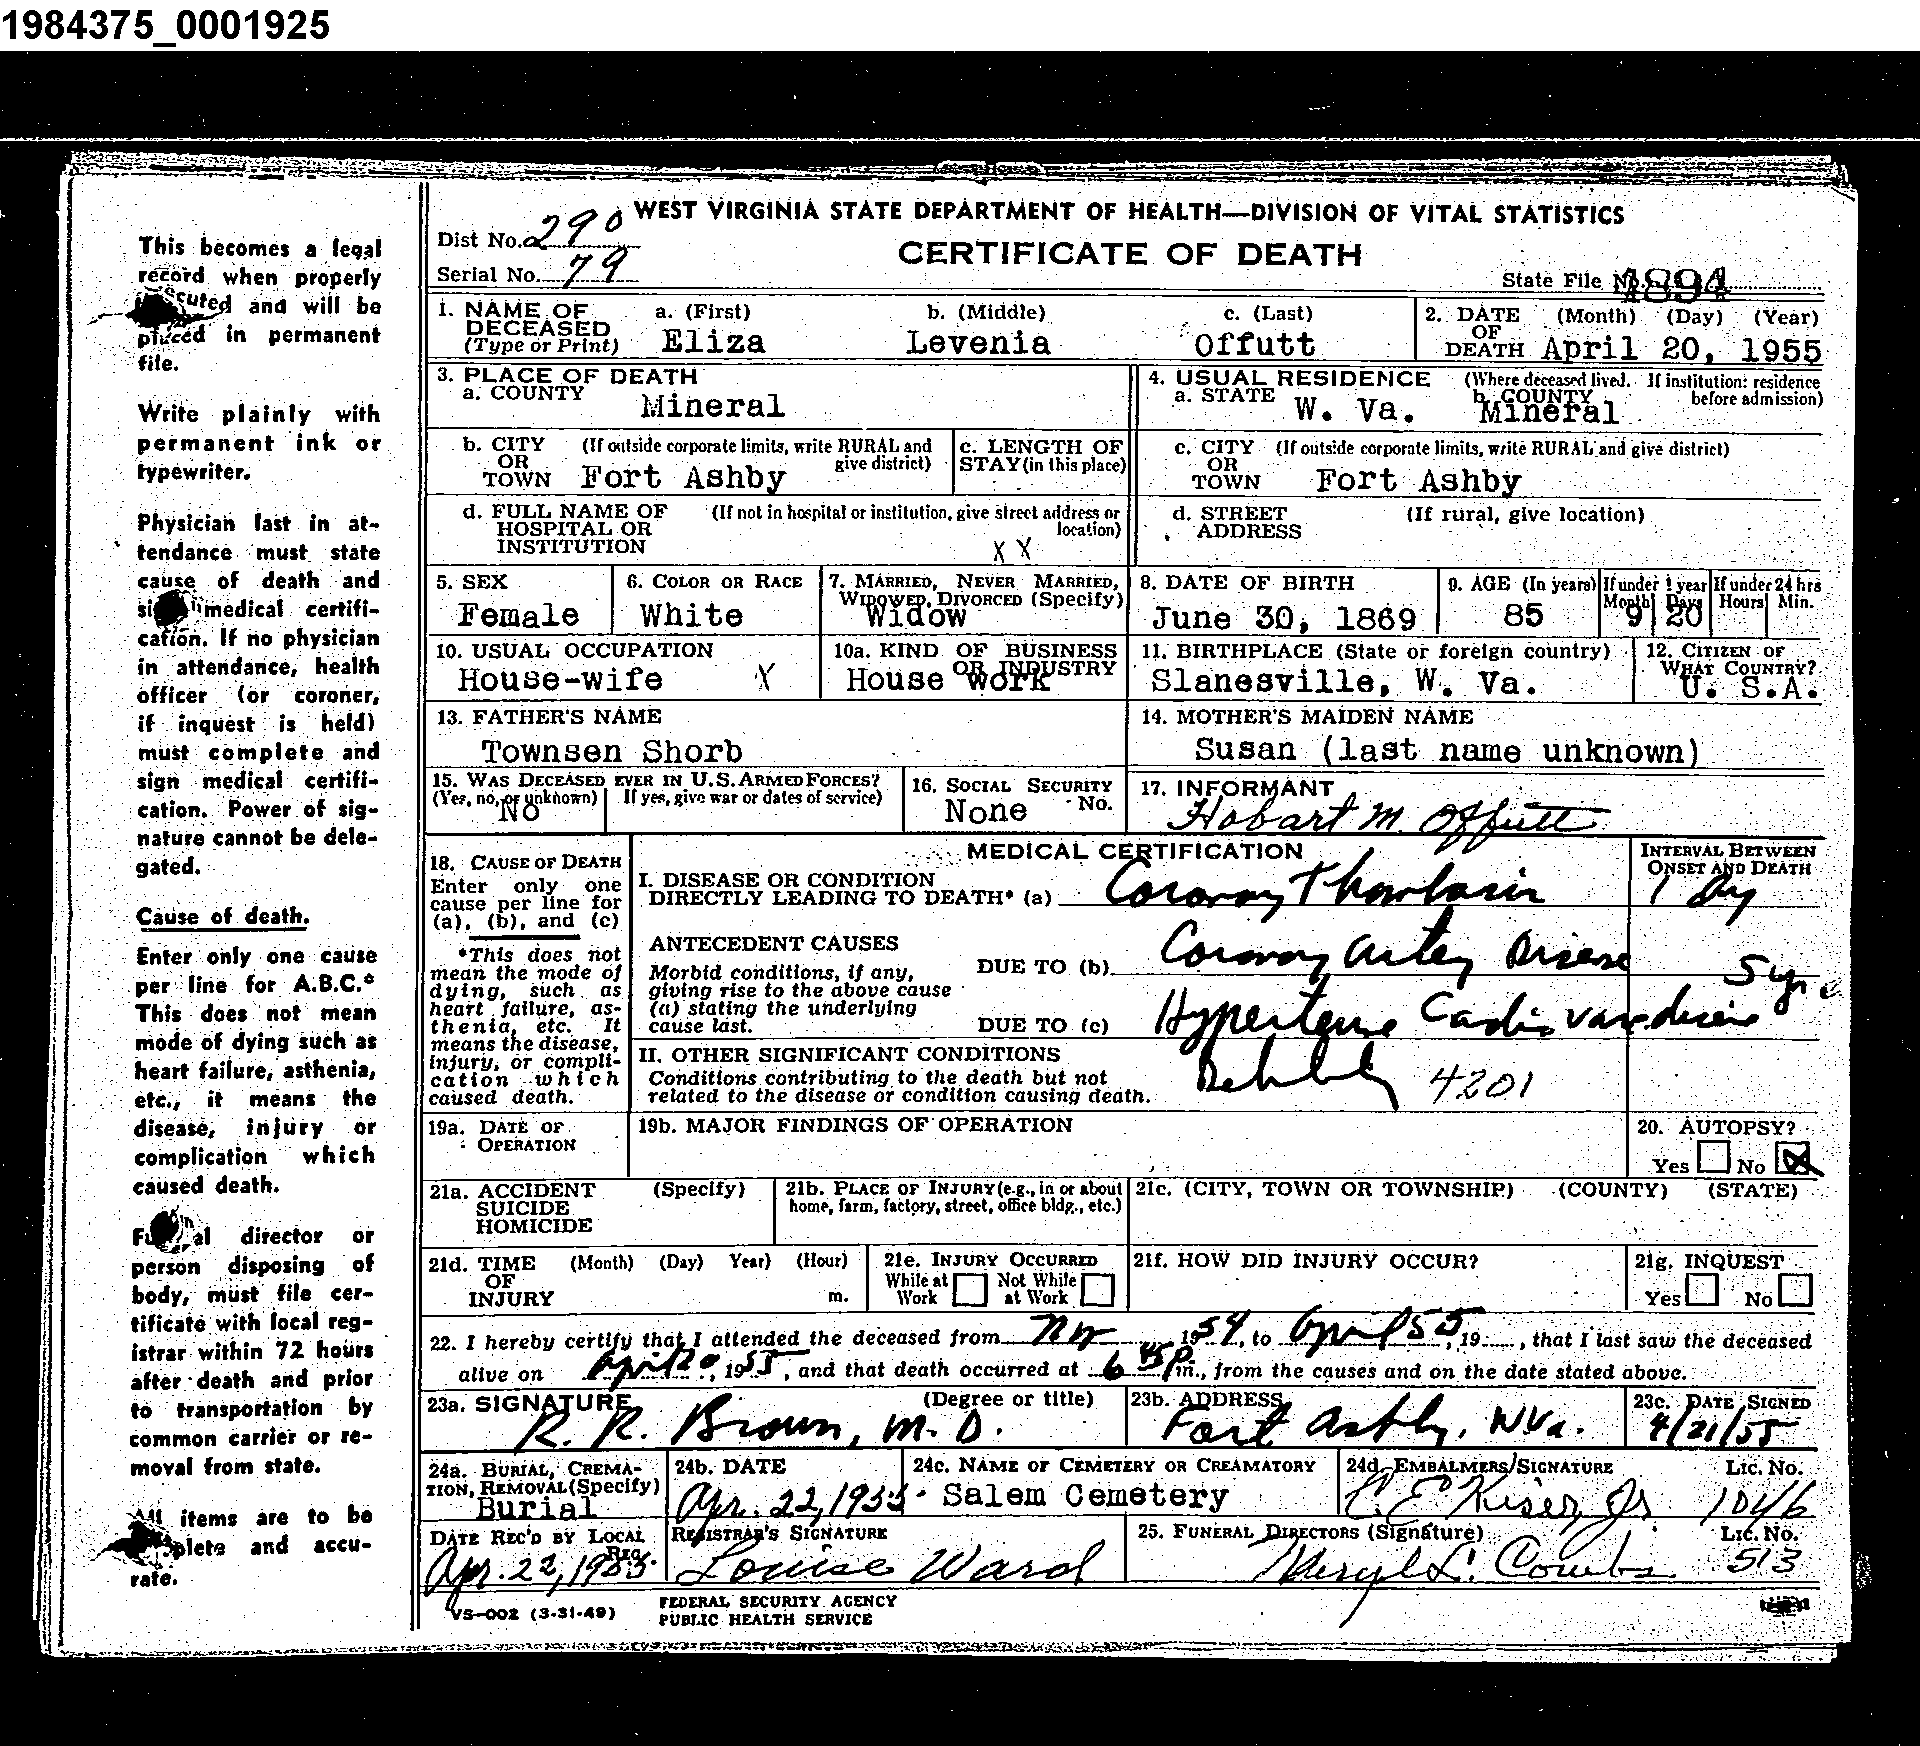 1984375_0001925
This becomes a legal
record when properly
and will be
placed in permanent
file.
Write plainly with
permanent ink or
typewriter.
Physician last in at-
tendance must state
cause of death and
medical certifi-
cation. If no physician
in attendance, health
officer (or coroner,
if inquest is held)
must complete and
sign medical certifi-
cation. Power of sig-
nature cannot be dele-
gated.
Cause of death.
Enter only one cause
per line for A.B.C.*
This does not mean
mode of dying such as
heart failure, asthenia,
etc., it means the
disease, injury or
complication which
caused death.
director or
person disposing of
body, must file cer-
tificate with local reg-
istrar within 72 hours
after death and prior
to transportation by
common carrier or re-
moval from state.
All items are to be
and accu-
rate.
WEST VIRGINIA STATE DEPARTMENT OF HEALTH—DIVISION OF VITAL STATISTICS
Dist No. 290
CERTIFICATE OF DEATH
Serial No. 79
State File No. 4894
1. NAME OF DECEASED (Type or Print) a. (First) b. (Middle) c. (Last)
Eliza Levenia Offutt
2. DATE OF DEATH (Month) (Day) (Year)
April 20, 1955
3. PLACE OF DEATH
a. COUNTY Mineral
4. USUAL RESIDENCE (Where deceased lived. If institution: residence before admission)
a. STATE W. Va. b. COUNTY Mineral
b. CITY OR TOWN (If outside corporate limits, write RURAL and give district) Fort Ashby
c. LENGTH OF STAY (in this place)
c. CITY OR TOWN (If outside corporate limits, write RURAL and give district) Fort Ashby
d. FULL NAME OF HOSPITAL OR INSTITUTION (If not in hospital or institution, give street address or location) X X
d. STREET ADDRESS (If rural, give location)
5. SEX Female
6. COLOR OR RACE White
7. MARRIED, NEVER MARRIED, WIDOWED, DIVORCED (Specify) Widow
8. DATE OF BIRTH June 30, 1869
9. AGE (In years) 85
If under 1 year Months 9 Days 20
If under 24 hrs Hours Min.
10. USUAL OCCUPATION House-wife X
10a. KIND OF BUSINESS OR INDUSTRY House work
11. BIRTHPLACE (State or foreign country) Slanesville, W. Va.
12. CITIZEN OF WHAT COUNTRY? U. S.A.
13. FATHER'S NAME Townsen Shorb
14. MOTHER'S MAIDEN NAME Susan (last name unknown)
15. WAS DECEASED EVER IN U.S. ARMED FORCES?
(Yes, no, or unknown) No
If yes, give war or dates of service)
16. SOCIAL SECURITY No. None
17. INFORMANT Hobart M. Offutt
MEDICAL CERTIFICATION
INTERVAL BETWEEN ONSET AND DEATH
18. CAUSE OF DEATH
Enter only one
cause per line for
(a), (b), and (c)
*This does not
mean the mode of
dying, such as
heart failure, as-
thenia, etc. It
means the disease,
injury, or compli-
cation which
caused death.
I. DISEASE OR CONDITION
DIRECTLY LEADING TO DEATH* (a) Coronary Thrombosis 1 Day
ANTECEDENT CAUSES
Morbid conditions, if any,
giving rise to the above cause
(a) stating the underlying
cause last.
DUE TO (b) Coronary artery Disease 5 yrs
DUE TO (c) Hypertensive Cardiovas disease
II. OTHER SIGNIFICANT CONDITIONS
Conditions contributing to the death but not
related to the disease or condition causing death.
4201
19a. DATE OF OPERATION
19b. MAJOR FINDINGS OF OPERATION
20. AUTOPSY?
Yes No X
21a. ACCIDENT SUICIDE HOMICIDE (Specify)
21b. PLACE OF INJURY (e.g., in or about
home, farm, factory, street, office bldg., etc.)
21c. (CITY, TOWN OR TOWNSHIP) (COUNTY) (STATE)
21d. TIME OF INJURY (Month) (Day) Year) (Hour) m.
21e. INJURY OCCURRED
While at Work Not While at Work
21f. HOW DID INJURY OCCUR?
21g. INQUEST
Yes No
22. I hereby certify that I attended the deceased from Nov 1954, to April 55, 19 , that I last saw the deceased
alive on April 20, 1955, and that death occurred at 6 45 P m., from the causes and on the date stated above.
23a. SIGNATURE (Degree or title)
R. R. Brown, M. D.
23b. ADDRESS
Fort Ashby, W Va.
23c. DATE SIGNED
4/21/55
24a. BURIAL, CREMA-
TION, REMOVAL (Specify)
Burial
24b. DATE
Apr. 22, 1955
24c. NAME OF CEMETERY OR CREAMATORY
Salem Cemetery
24d. EMBALMERS/SIGNATURE Lic. No.
C E Kiser, Jr. 1046
DATE REC'D BY LOCAL REG.
Apr. 22, 1955
REGISTRAR'S SIGNATURE
Louise Ward
25. FUNERAL DIRECTORS (Signature) Lic. No.
Meryl L. Combs 513
VS-002 (3-31-49)
FEDERAL SECURITY AGENCY
PUBLIC HEALTH SERVICE